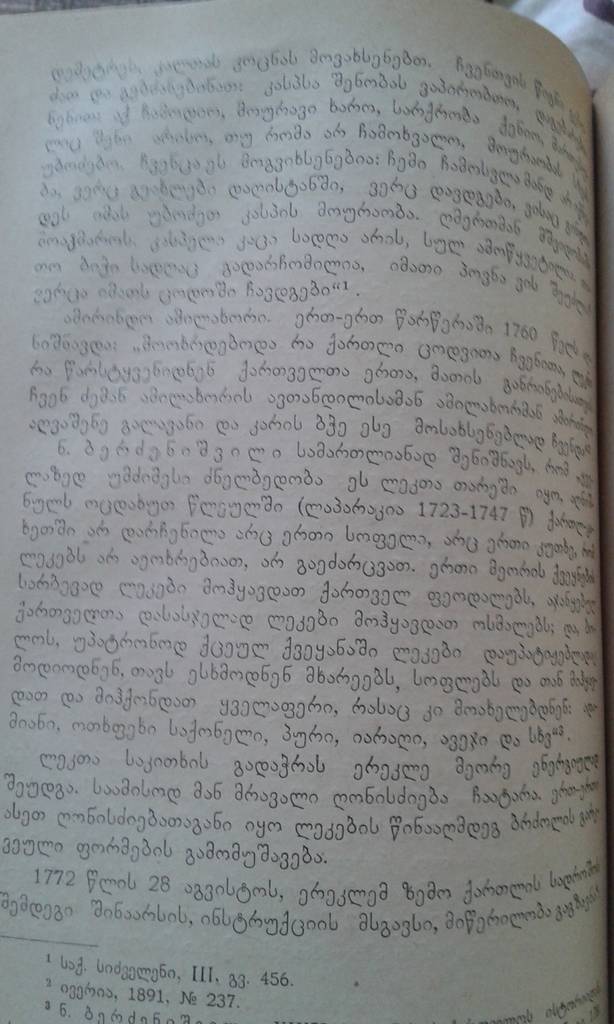 დემეტრეს, კალთას კოცნას მოვახსენებთ. ჩვენთვის წიგნი
ძათ და გებძანებინათ: კასპსა შენობას ვაპირობთო,
ნენით: აქ ჩამოდიო, მოურავი ხარო, სარქრობა ქენიო,
ლიც შენი არისო, თუ რომა არ ჩამოხვალო, მოურაობას
უბოძებო. ჩვენცა ეს მოგვიხსენებია: ჩემი ჩამოსვლა მანდ არ
ბა, ვერც გეახლები დაღისტანში, ვერც დავდგები, ვისაც
დეს იმას უბოძეთ კასპის მოურაობა. ღმერთმან მშვიდობაში
მოაჴმაროს. კასპელი კაცი სადღა არის, სულ ამოწყვეტილა,
თო ბიჭი სადღაც გადარჩომილია, იმათი პოვნა ვის შეუძლია
ვერცა იმათს ცოდოში ჩავდგები“¹.
ამირინდო ამილახორი. ერთ-ერთ წარწერაში 1760 წელს
ნიშნავდა: „მოოხრდებოდა რა ქართლი ცოდვითა ჩვენითა,
რა წარსტყვენიდნენ ქართველთა ერთა, მათის განრინებისათვის
ჩვენ ძემან ამილახორის ავთანდილისამან ამილახორმან ამირინდო
აღვაშენე გალავანი და კარის ბჭე ესე მოსახსენებლად ჩვენდა“²
ნ. ბერძენიშვილი სამართლიანად შენიშნავს, რომ
ლაზედ უმძიმესი ძნელბედობა ეს ლეკთა თარეში იყო, აღნიშ-
ნულს ოცდახუთ წლეულში (ლაპარაკია 1723-1747 წ) ქართლ-კა-
ხეთში არ დარჩენილა არც ერთი სოფელი, არც ერთი კუთხე, რომ
ლეკებს არ აეოხრებიათ, არ გაეძარცვათ. ერთი მეორის ქვეყნების
სარბევად ლეკები მოჰყავდათ ქართველ ფეოდალებს, აჯანყებულ
ქართველთა დასასჯელად ლეკები მოჰყავდათ ოსმალებს; და, ბო-
ლოს, უპატრონოდ ქცეულ ქვეყანაში ლეკები დაუპატიჟებლადაც
მოდიოდნენ, თავს ესხმოდნენ მხარეებს, სოფლებს და თან მიჰყავ-
დათ და მიჰქონდათ ყველაფერი, რასაც კი მოახელებდნენ: ადა-
მიანი, ოთხფეხი საქონელი, პური, იარაღი, ავეჯი და სხვ“³.
ლეკთა საკითხის გადაჭრას ერეკლე მეორე ენერგიულად
შეუდგა. საამისოდ მან მრავალი ღონისძიება ჩაატარა. ერთ-ერთი
ასეთ ღონისძიებათაგანი იყო ლეკების წინააღმდეგ ბრძოლის გარკ-
ვეული ფორმების გამომუშავება.
1772 წლის 28 აგვისტოს, ერეკლემ ზემო ქართლის სადროშოს
შემდეგი შინაარსის, ინსტრუქციის მსგავსი, მიწერილობა გაგზავნა
¹ საქ. სიძველენი, III, გვ. 456.
² ივერია, 1891, № 237.
³ ნ. ბერძენიშვილი